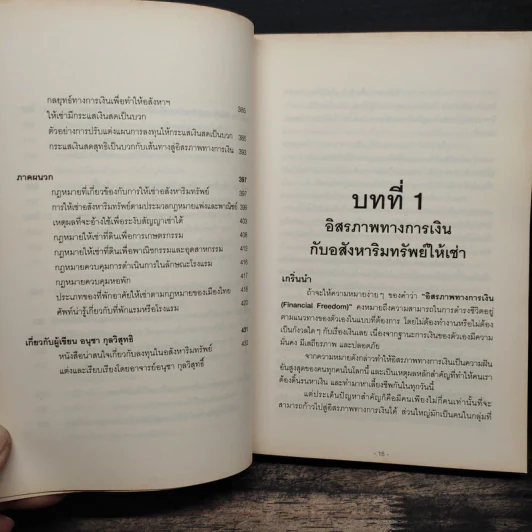 กลยุทธ์ทางการเงินเพื่อทำให้อสังหาฯ
ให้เช่ามีกระแสเงินสดเป็นบวก 380
ตัวอย่างการปรับแต่งแผนการลงทุนให้กระแสเงินสดเป็นบวก 388
กระแสเงินสดสุทธิเป็นบวกกับเส้นทางสู่อิสรภาพทางการเงิน 393
ภาคผนวก 397
กฎหมายที่เกี่ยวข้องกับการให้เช่าอสังหาริมทรัพย์ 397
การให้เช่าอสังหาริมทรัพย์ตามประมวลกฎหมายแพ่งและพาณิชย์ 399
เหตุผลที่จะอ้างใช้เพื่อระงับสัญญาเช่าได้ 403
กฎหมายให้เช่าที่ดินเพื่อการเกษตรกรรม
กฎหมายให้เช่าที่ดินเพื่อพาณิชกรรมและอุตสาหกรรม
กฎหมายควบคุมการดำเนินการในลักษณะโรงแรม
กฎหมายควบคุมหอพัก
ประเภทของที่พักอาศัยให้เช่าตามกฎหมายของเมืองไทย
ศัพท์น่ารู้เกี่ยวกับที่พักแรมหรือโรงแรม
เกี่ยวกับผู้เขียน อนุชา กุลวิสุทธิ์ 431
หนังสือน่าสนใจเกี่ยวกับลงทุนในอสังหาริมทรัพย์
แต่งและเรียบเรียงโดยอาจารย์อนุชา กุลวิสุทธิ์
บทที่ 1
อิสรภาพทางการเงิน
กับอสังหาริมทรัพย์ให้เช่า
เกริ่นนำ
ถ้าจะให้ความหมายง่ายๆ ของคำว่า "อิสรภาพทางการเงิน
(Financial Freedom)" คงหมายถึงความสามารถในการดำรงชีวิตอยู่
ตามแนวทางของตัวเองในแบบที่ต้องการ โดยไม่ต้องทำงานหรือไม่ต้อง
เป็นกังวลใดๆ กับเรื่องเงินเลย เนื่องจากฐานะการเงินของตัวเองมีความ
มั่นคง มีเสถียรภาพ และปลอดภัย
จากความหมายดังกล่าวทำให้อิสรภาพทางการเงินเป็นความฝัน
อันสูงสุดของคนทุกคนในโลกนี้ และเป็นเหตุผลหลักสำคัญที่ทำให้คนเรา
ต้องดิ้นรนหาเงิน และทำมาหาเลี้ยงชีพกันในทุกวันนี้
แต่ประเด็นปัญหาสำคัญก็คือมีคนเพียงไม่กี่คนเท่านั้นที่จะ
สามารถก้าวไปสู่อิสรภาพทางการเงินได้ ส่วนใหญ่มักเป็นคนในกลุ่มที่
- 15 -